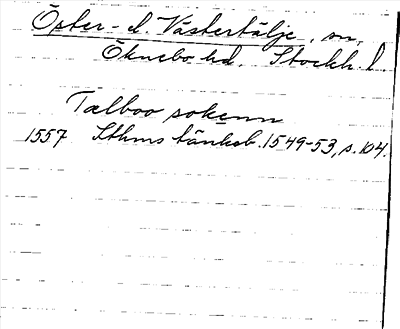 Öster- o. Västertälje, sn,
Öknebo hd. Stockh. l
Talboo sokenn
1557 Sthms tänkeb. 1549-53, s. 104.